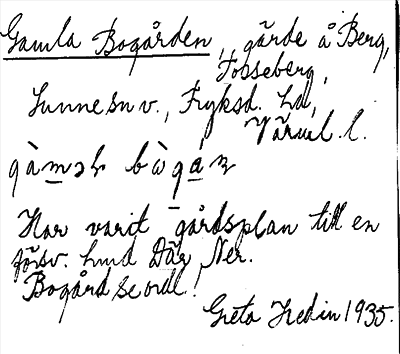 Gamla Bogården, gärde å Berg,
Fosseberg,
Sunne sn v., Fryksd. hd,
Värml. l.
Har varit gårdsplan till en
förv. hmd Där Ner.
Bogård se ordl.
Greta Hedin 1935.